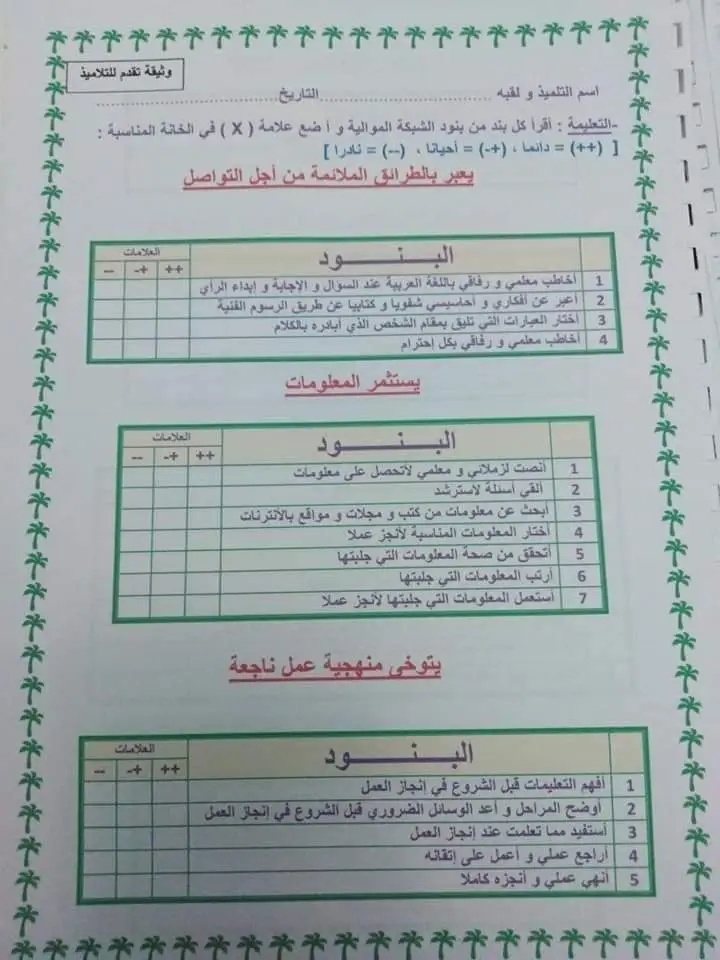 وثيقة تقدم للتلاميذ
اسم التلميذ و لقبه ........................................التاريخ........................................
-التعليمة : أقرأ كل بند من بنود الشبكة الموالية و أ ضع علامة ( X ) في الخانة المناسبة :
[ (++) = دائما ، (+-) = أحيانا ، (--) = نادرا ]
يعبر بالطرائق الملائمة من أجل التواصل
البـنـــــود العلامات
++ +- --
1 أخاطب معلمي و رفاقي باللغة العربية عند السؤال و الإجابة و إبداء الرأي
2 أعبر عن أفكاري و أحاسيسي شفويا و كتابيا عن طريق الرسوم الفنية
3 أختار العبارات التي تليق بمقام الشخص الذي أبادره بالكلام
4 أخاطب معلمي و رفاقي بكل إحترام
يستثمر المعلومات
البـنـــــود العلامات
++ +- --
1 أنصت لزملائي و معلمي لأتحصل على معلومات
2 ألقي أسئلة لأسترشد
3 أبحث عن معلومات من كتب و مجلات و مواقع بالأنترنات
4 أختار المعلومات المناسبة لأنجز عملا
5 أتحقق من صحة المعلومات التي جلبتها
6 أرتب المعلومات التي جلبتها
7 أستعمل المعلومات التي جلبتها لأنجز عملا
يتوخى منهجية عمل ناجعة
البـنـــــود العلامات
++ +- --
1 أفهم التعليمات قبل الشروع في إنجاز العمل
2 أوضح المراحل و أعد الوسائل الضروري قبل الشروع في إنجاز العمل
3 أستفيد مما تعلمت عند إنجاز العمل
4 أراجع عملي و أعمل على إتقانه
5 أنهي عملي و أنجزه كاملا